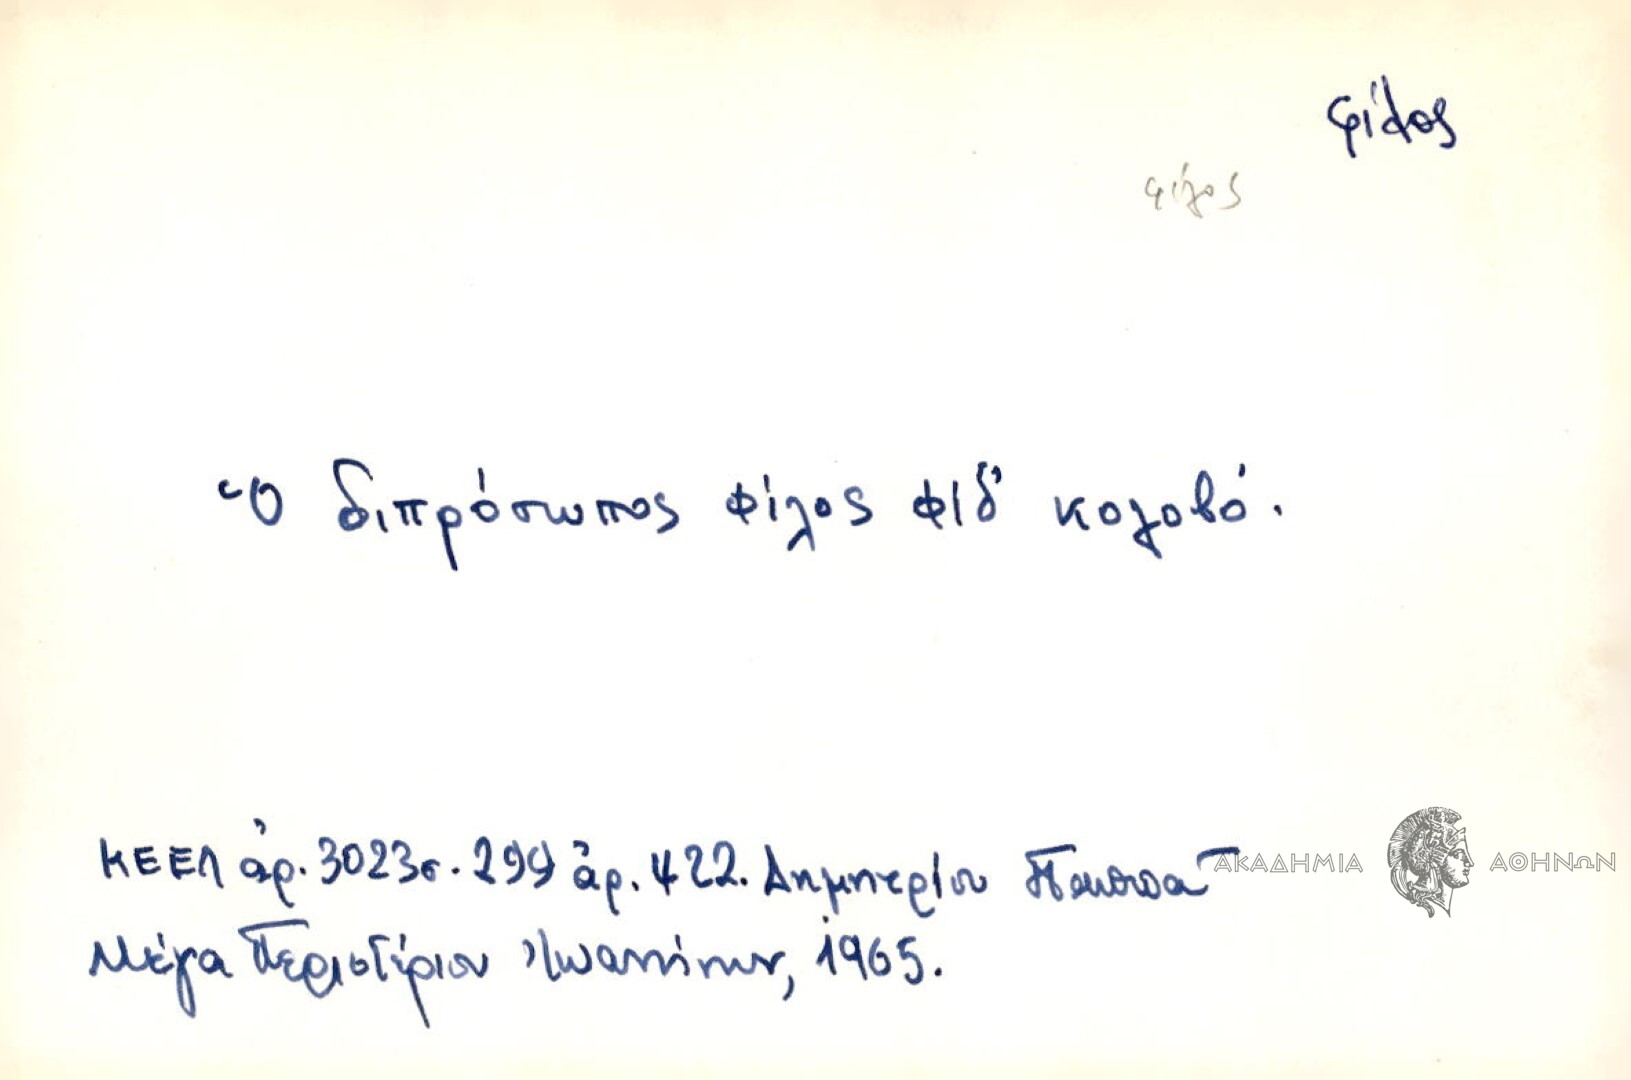 φίλος
φίλος
Ὁ διπρόσωπος φίλος φίδ' κολοβό.
ΚΕΕΛ ἀρ. 3023 σ. 299 ἀρ. 422. Δημητρίου
ΑΚΑΔΗΜΙΑ ΑΘΗΝΩΝ
Μέγα Περιστέριον Ἰωαννίνων, 1965.